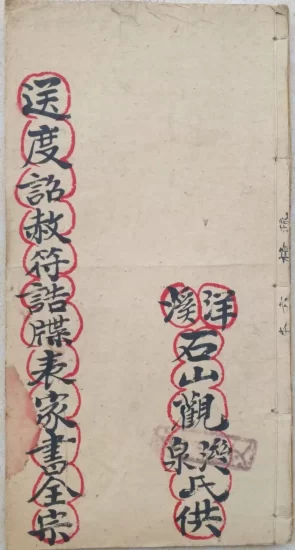 洋溪石山觀泉氏供
送度詔赦符誥牒表家書全宗